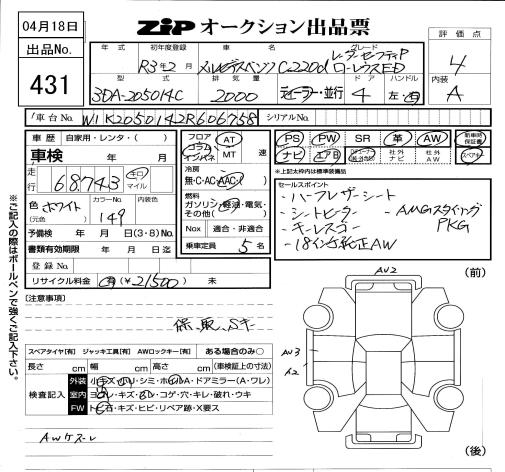 04月18日
出品No.
431
ZiP オークション出品票
評価点
4
内装
A
年式
初年度登録
車名
グレード
R3年2月
メルセデスベンツ C220d
レーダーセーフティP
ローレウスED
型式
排気量
ドア
ハンドル
3DA-205014C
2000
ディーラー・並行
4
左・右
車台No.
W1K2050142R606758
シリアルNo.
車歴
自家用・レンタ・( )
車検
年 月
走行
68743
キロ
マイル
色
ホワイト
(元色)
カラーNo.
149
予備検 年 月 日(3・8)No.
書類有効期限 年 月 日迄
登録No.
リサイクル料金 有(¥21500) 未
フロア
コラム
インパネ
AT
MT
速
冷房
無・C・AC・AAC
燃料
ガソリン・軽油・電気・
その他( )
Nox
適合・非適合
乗車定員
5名
PS
PW
SR
革
AW
新車時保証書
ナビ
エアB
社外ナビ
社外AW
*上記太枠内は標準装備品
セールスポイント
- ハーフレザーシート
- シートヒーター
- キーレスゴー
- 18インチ純正AW
- AMGスタイリング
PKG
[注意事項]
保、取、Sキー
スペアタイヤ[有] ジャッキ工具[有] AWロックキー[有] ある場合のみ○
長さ cm 幅 cm 高さ cm (車検証上の寸法)
検査記入
外装
小キズ・小凹・シミ・ホイルA・ドアミラー(A・ワレ)
室内
ヨゴレ・キズ・スレ・コゲ・穴・キレ・破れ・ウキ
FW
トビ石・キズ・ヒビ・リペア跡・X要ス
AWケスレ
AU2
AU3
A2
(前)
(後)
※ご記入の際はボールペンで強くご記入下さい。